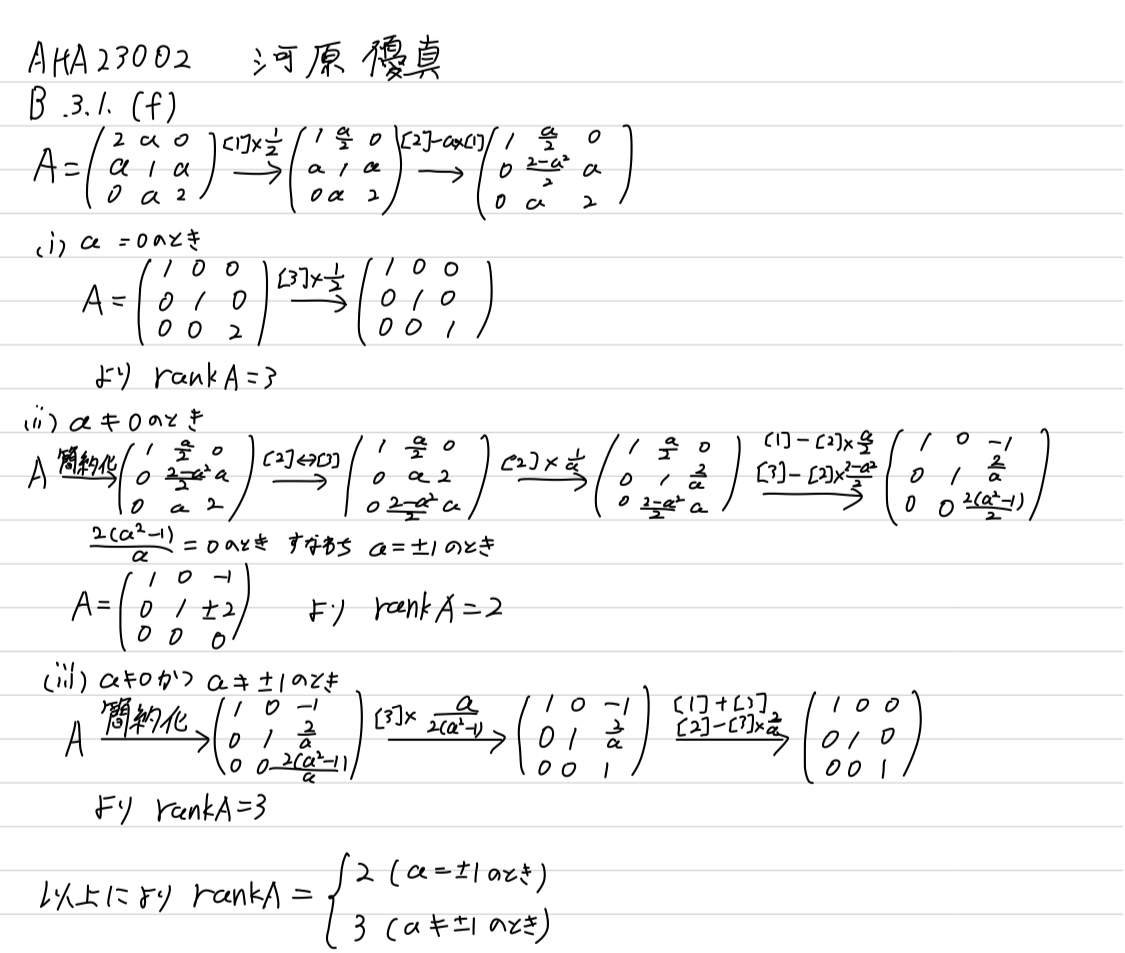 AHA23002 河原 優真
B.3.1.(f)
A = \begin{pmatrix} 2 & a & 0 \\ a & 1 & a \\ 0 & a & 2 \end{pmatrix} \xrightarrow{[1]×\frac{1}{2}} \begin{pmatrix} 1 & \frac{a}{2} & 0 \\ a & 1 & a \\ 0 & a & 2 \end{pmatrix} \xrightarrow{[2]-a×[1]} \begin{pmatrix} 1 & \frac{a}{2} & 0 \\ 0 & \frac{2-a^2}{2} & a \\ 0 & a & 2 \end{pmatrix}
(i) a = 0のとき
A = \begin{pmatrix} 1 & 0 & 0 \\ 0 & 1 & 0 \\ 0 & 0 & 2 \end{pmatrix} \xrightarrow{[3]×\frac{1}{2}} \begin{pmatrix} 1 & 0 & 0 \\ 0 & 1 & 0 \\ 0 & 0 & 1 \end{pmatrix}
より rankA=3
(ii) a ≠ 0のとき
A \xrightarrow{簡約化} \begin{pmatrix} 1 & \frac{a}{2} & 0 \\ 0 & \frac{2-a^2}{2} & a \\ 0 & a & 2 \end{pmatrix} \xrightarrow{[2]↔[3]} \begin{pmatrix} 1 & \frac{a}{2} & 0 \\ 0 & a & 2 \\ 0 & \frac{2-a^2}{2} & a \end{pmatrix} \xrightarrow{[2]×\frac{1}{a}} \begin{pmatrix} 1 & \frac{a}{2} & 0 \\ 0 & 1 & \frac{2}{a} \\ 0 & \frac{2-a^2}{2} & a \end{pmatrix} \xrightarrow[[3]-[2]×\frac{2-a^2}{2}]{[1]-[2]×\frac{a}{2}} \begin{pmatrix} 1 & 0 & -1 \\ 0 & 1 & \frac{2}{a} \\ 0 & 0 & \frac{2(a^2-1)}{2} \end{pmatrix}
\frac{2(a^2-1)}{a} = 0のとき すなわち a = ±1のとき
A = \begin{pmatrix} 1 & 0 & -1 \\ 0 & 1 & ±2 \\ 0 & 0 & 0 \end{pmatrix} より rankA=2
(iii) a≠0かつ a ≠ ±1のとき
A \xrightarrow{簡約化} \begin{pmatrix} 1 & 0 & -1 \\ 0 & 1 & \frac{2}{a} \\ 0 & 0 & \frac{2(a^2-1)}{a} \end{pmatrix} \xrightarrow{[3]×\frac{a}{2(a^2-1)}} \begin{pmatrix} 1 & 0 & -1 \\ 0 & 1 & \frac{2}{a} \\ 0 & 0 & 1 \end{pmatrix} \xrightarrow[[2]-[3]×\frac{2}{a}]{[1]+[3]} \begin{pmatrix} 1 & 0 & 0 \\ 0 & 1 & 0 \\ 0 & 0 & 1 \end{pmatrix}
より rankA=3
以上により rankA = \begin{cases} 2 (a=±1のとき) \\ 3 (a≠±1のとき) \end{cases}